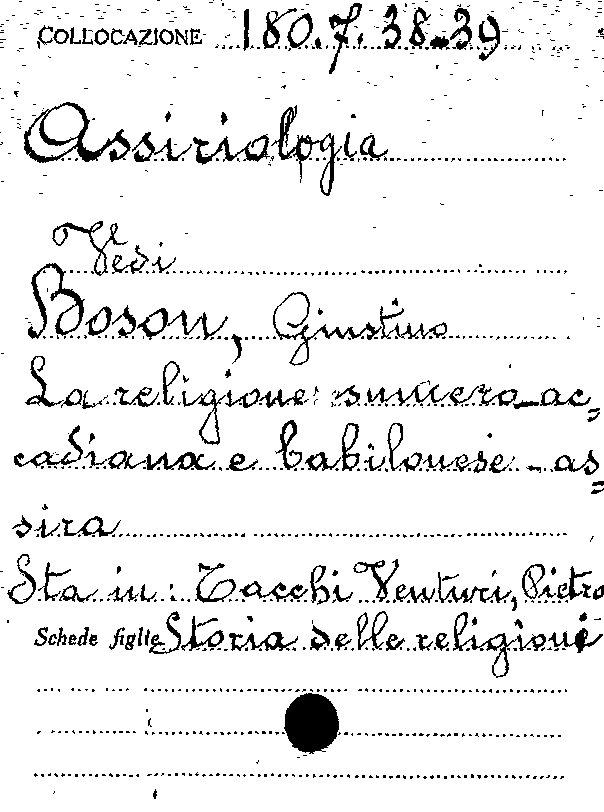 COLLOCAZIONE 180.7.38-39
Assiriologia
Vedi
Boson, Giustino
La religione sumero-ac=
cadiana e babilonese-as=
sira
Sta in: Tacchi Venturi, Pietro
Schede figlie Storia delle religioni